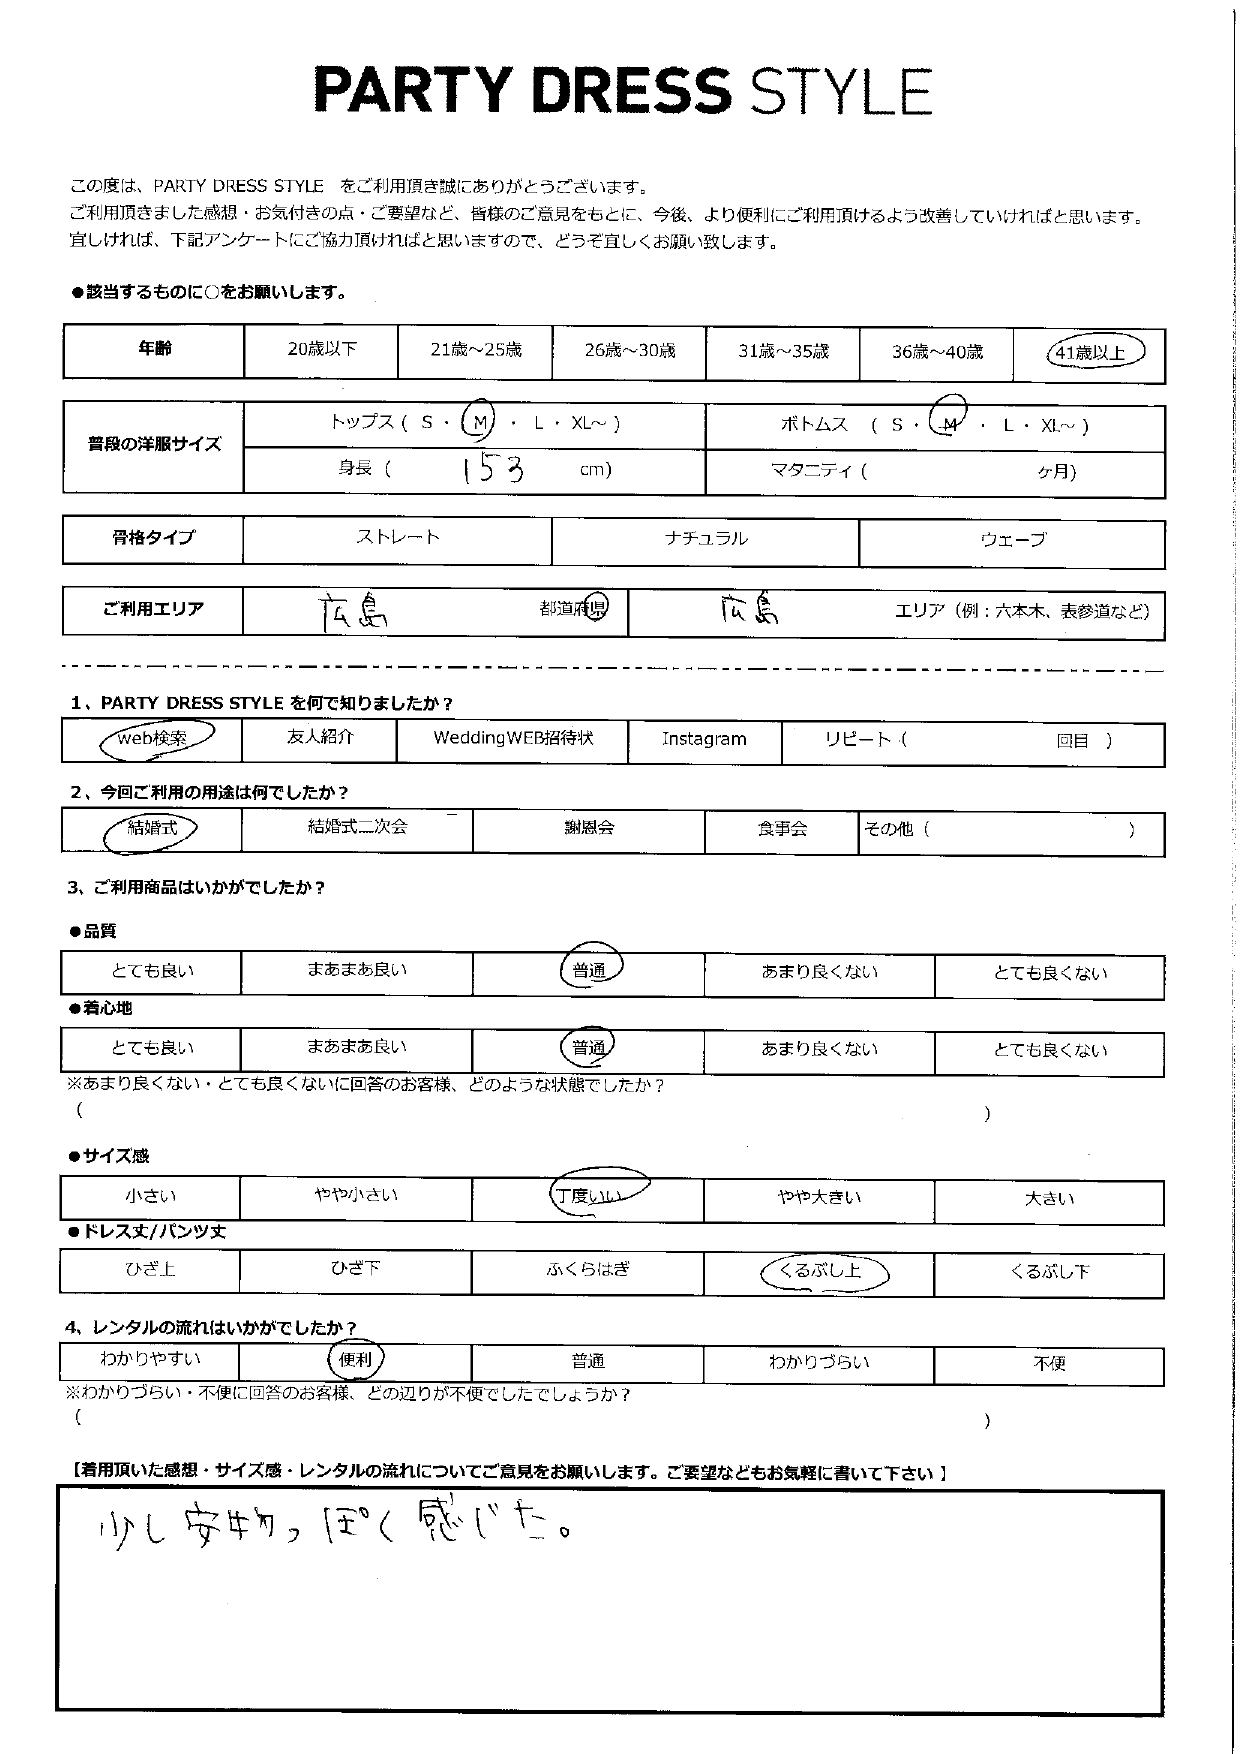 PARTY DRESS STYLE
この度は、PARTY DRESS STYLE　をご利用頂き誠にありがとうございます。
ご利用頂きました感想・お気付きの点・ご要望など、皆様のご意見をもとに、今後、より便利にご利用頂けるよう改善していければと思います。
宜しければ、下記アンケートにご協力頂ければと思いますので、どうぞ宜しくお願い致します。
●該当するものに○をお願いします。
年齢 20歳以下 21歳～25歳 26歳～30歳 31歳～35歳 36歳～40歳 41歳以上
普段の洋服サイズ
トップス ( S ・ M ・ L ・ XL～ ) ボトムス ( S ・ M ・ L ・ XL～ )
身長 ( 153 cm) マタニティ ( ケ月)
骨格タイプ ストレート ナチュラル ウェーブ
ご利用エリア 広島 都道府県 広島 エリア（例：六本木、表参道など）
1、PARTY DRESS STYLE を何で知りましたか？
web検索 友人紹介 WeddingWEB招待状 Instagram リピート ( 回目 )
2、今回ご利用の用途は何でしたか？
結婚式 結婚式二次会 謝恩会 食事会 その他 ( )
3、ご利用商品はいかがでしたか？
●品質
とても良い まあまあ良い 普通 あまり良くない とても良くない
●着心地
とても良い まあまあ良い 普通 あまり良くない とても良くない
※あまり良くない・とても良くないに回答のお客様、どのような状態でしたか？
( )
●サイズ感
小さい やや小さい 丁度いい やや大きい 大きい
●ドレス丈/パンツ丈
ひざ上 ひざ下 ふくらはぎ くるぶし上 くるぶし下
4、レンタルの流れはいかがでしたか？
わかりやすい 便利 普通 わかりづらい 不便
※わかりづらい・不便に回答のお客様、どの辺りが不便でしたでしょうか？
( )
【着用頂いた感想・サイズ感・レンタルの流れについてご意見をお願いします。ご要望などもお気軽に書いて下さい 】
少し安物っぽく感じた。